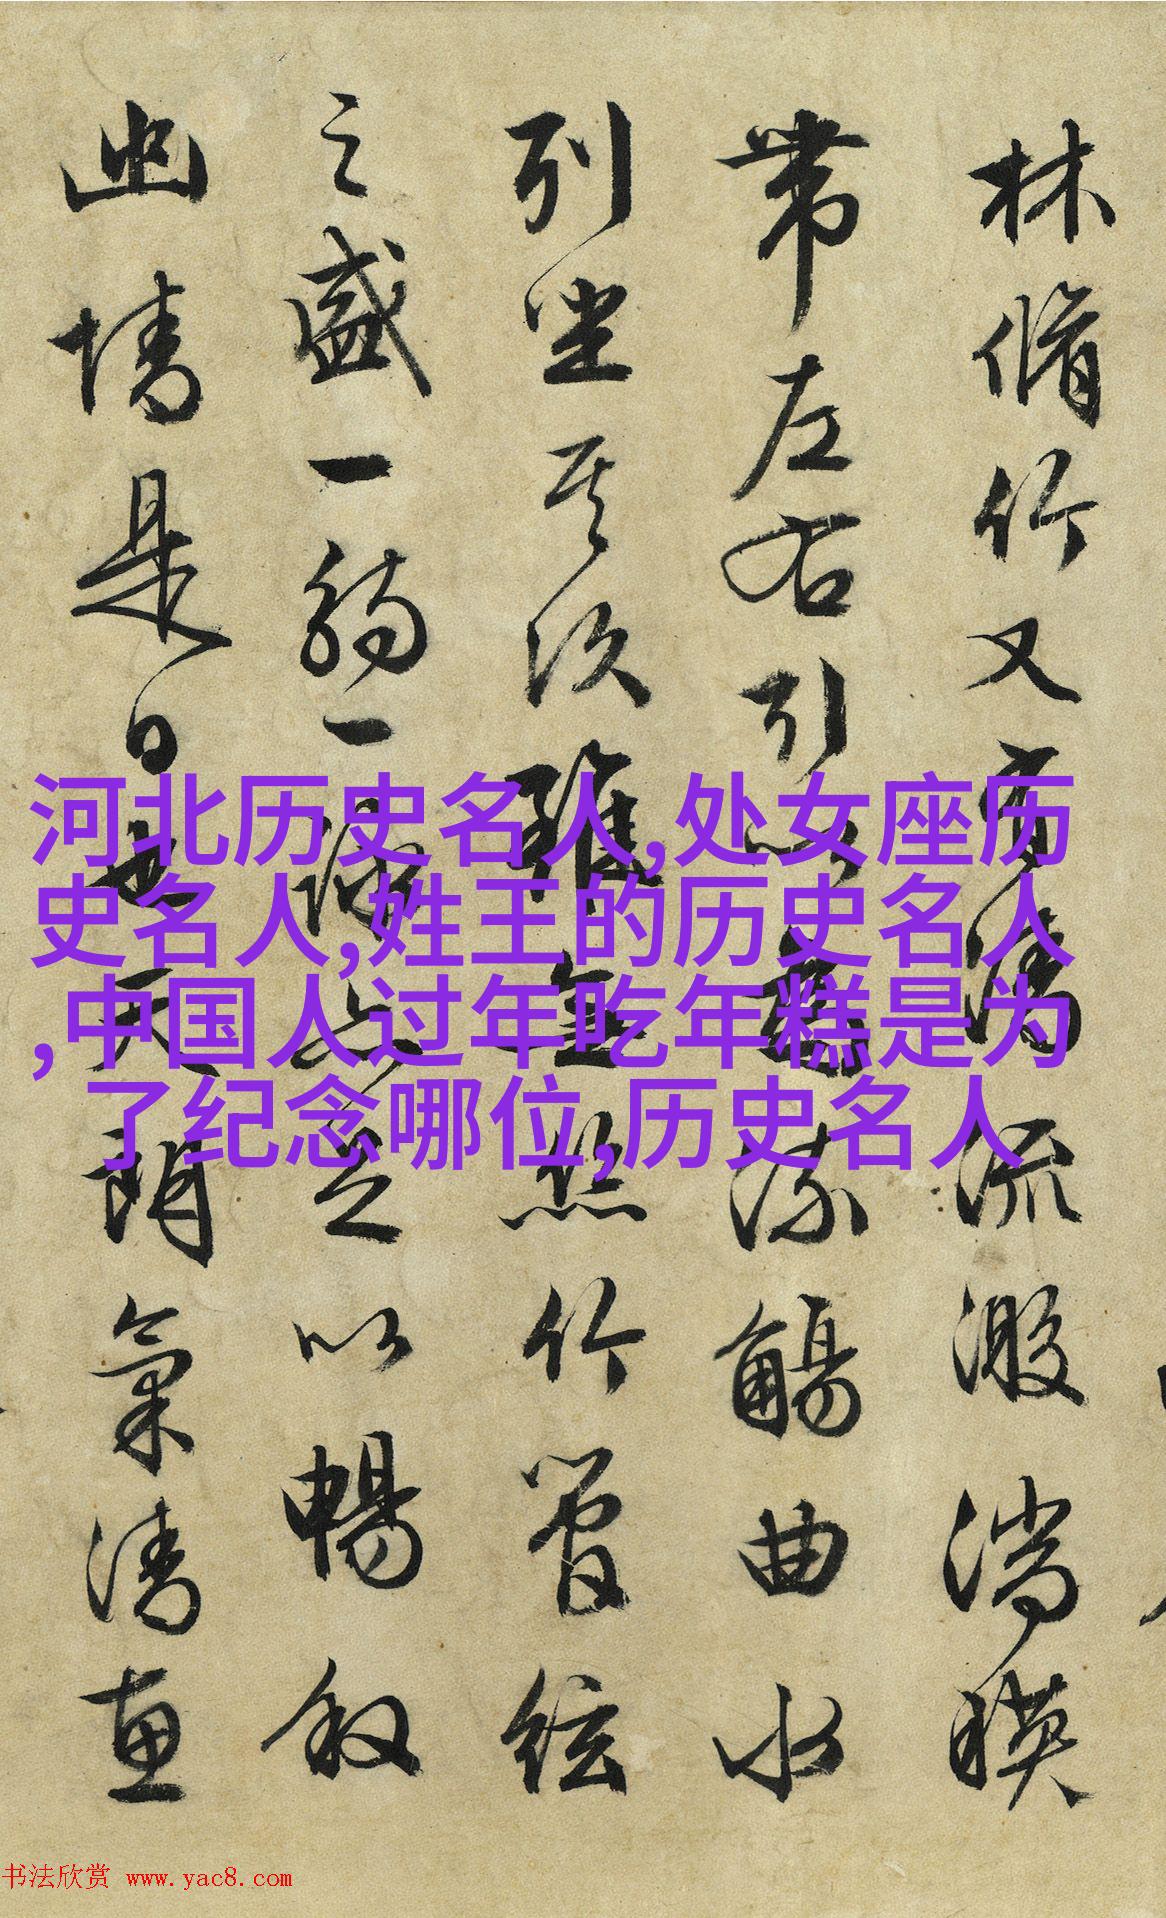 林脩竹又有清流激湍暎
帶左右引以為流觴曲水
列坐其次雖無絲竹管絃
之盛一觴一詠亦足以暢叙
幽情是日也天朗氣清惠
河北历史名人,处女座历
史名人,姓王的历史名人
,中国人过年吃年糕是为
了纪念哪位,历史名人
书法欣赏 www.yac8.com